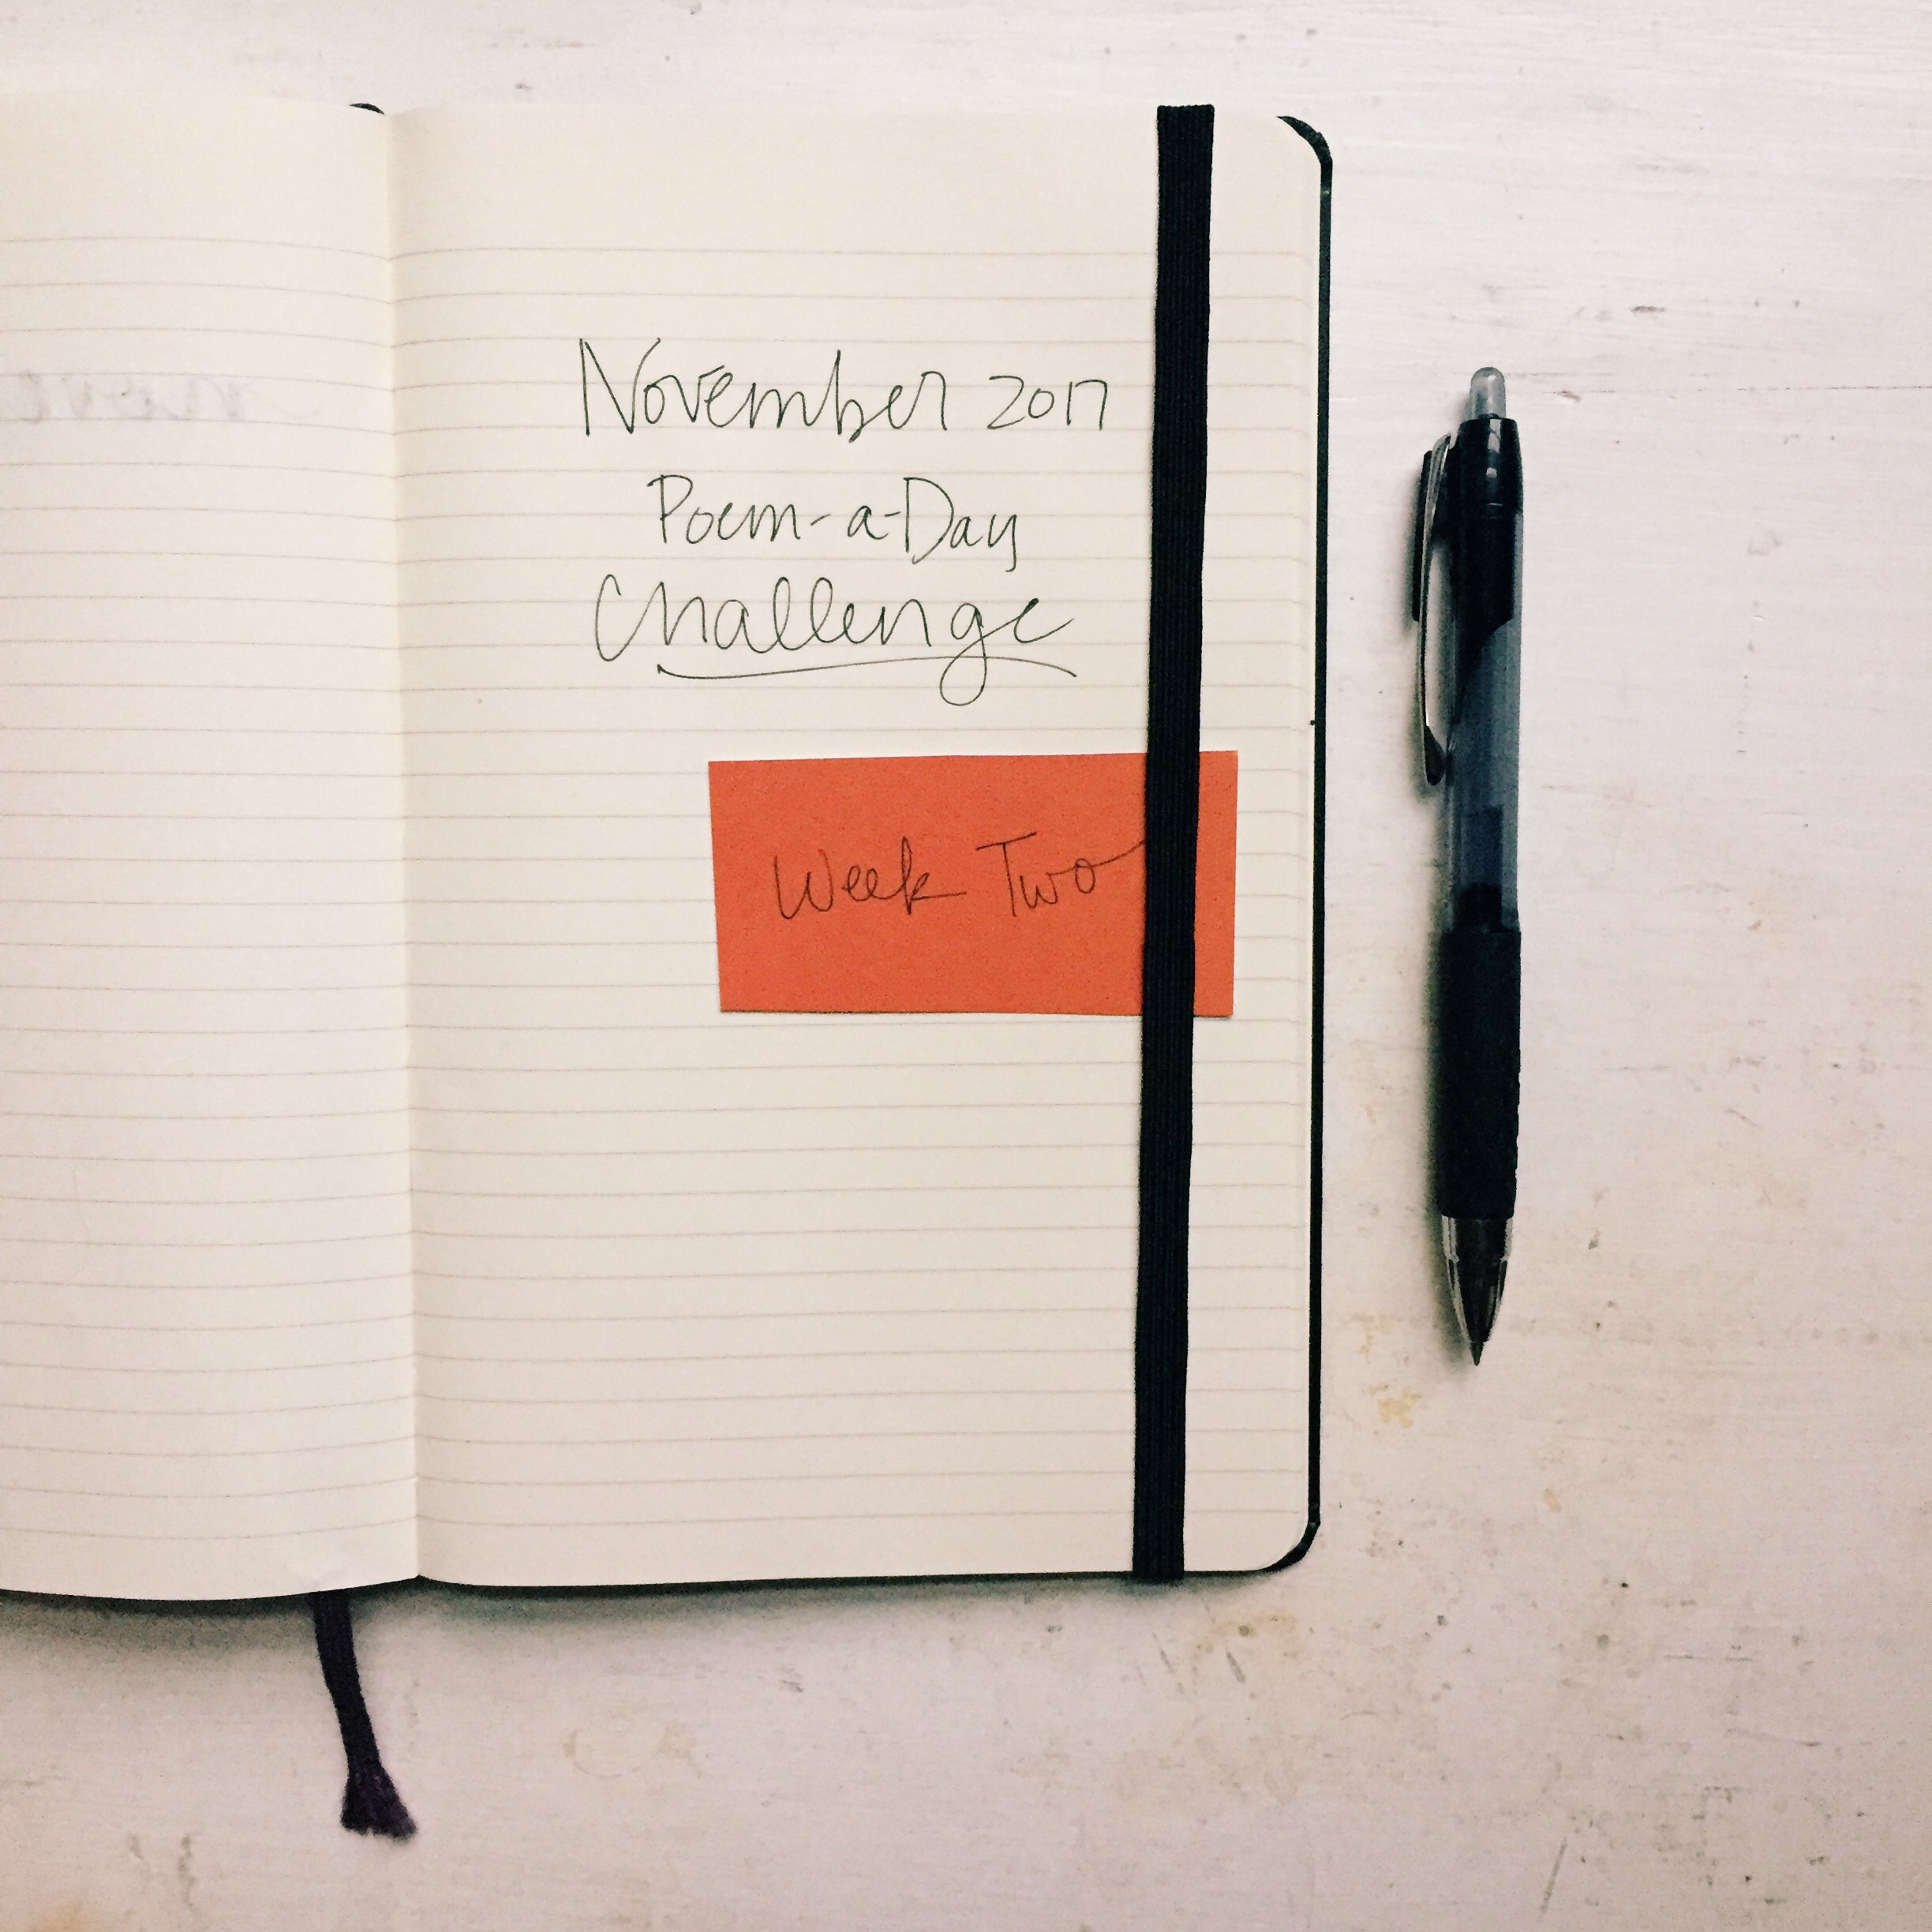 November 2017
Poem-a-Day
Challenge
Week Two